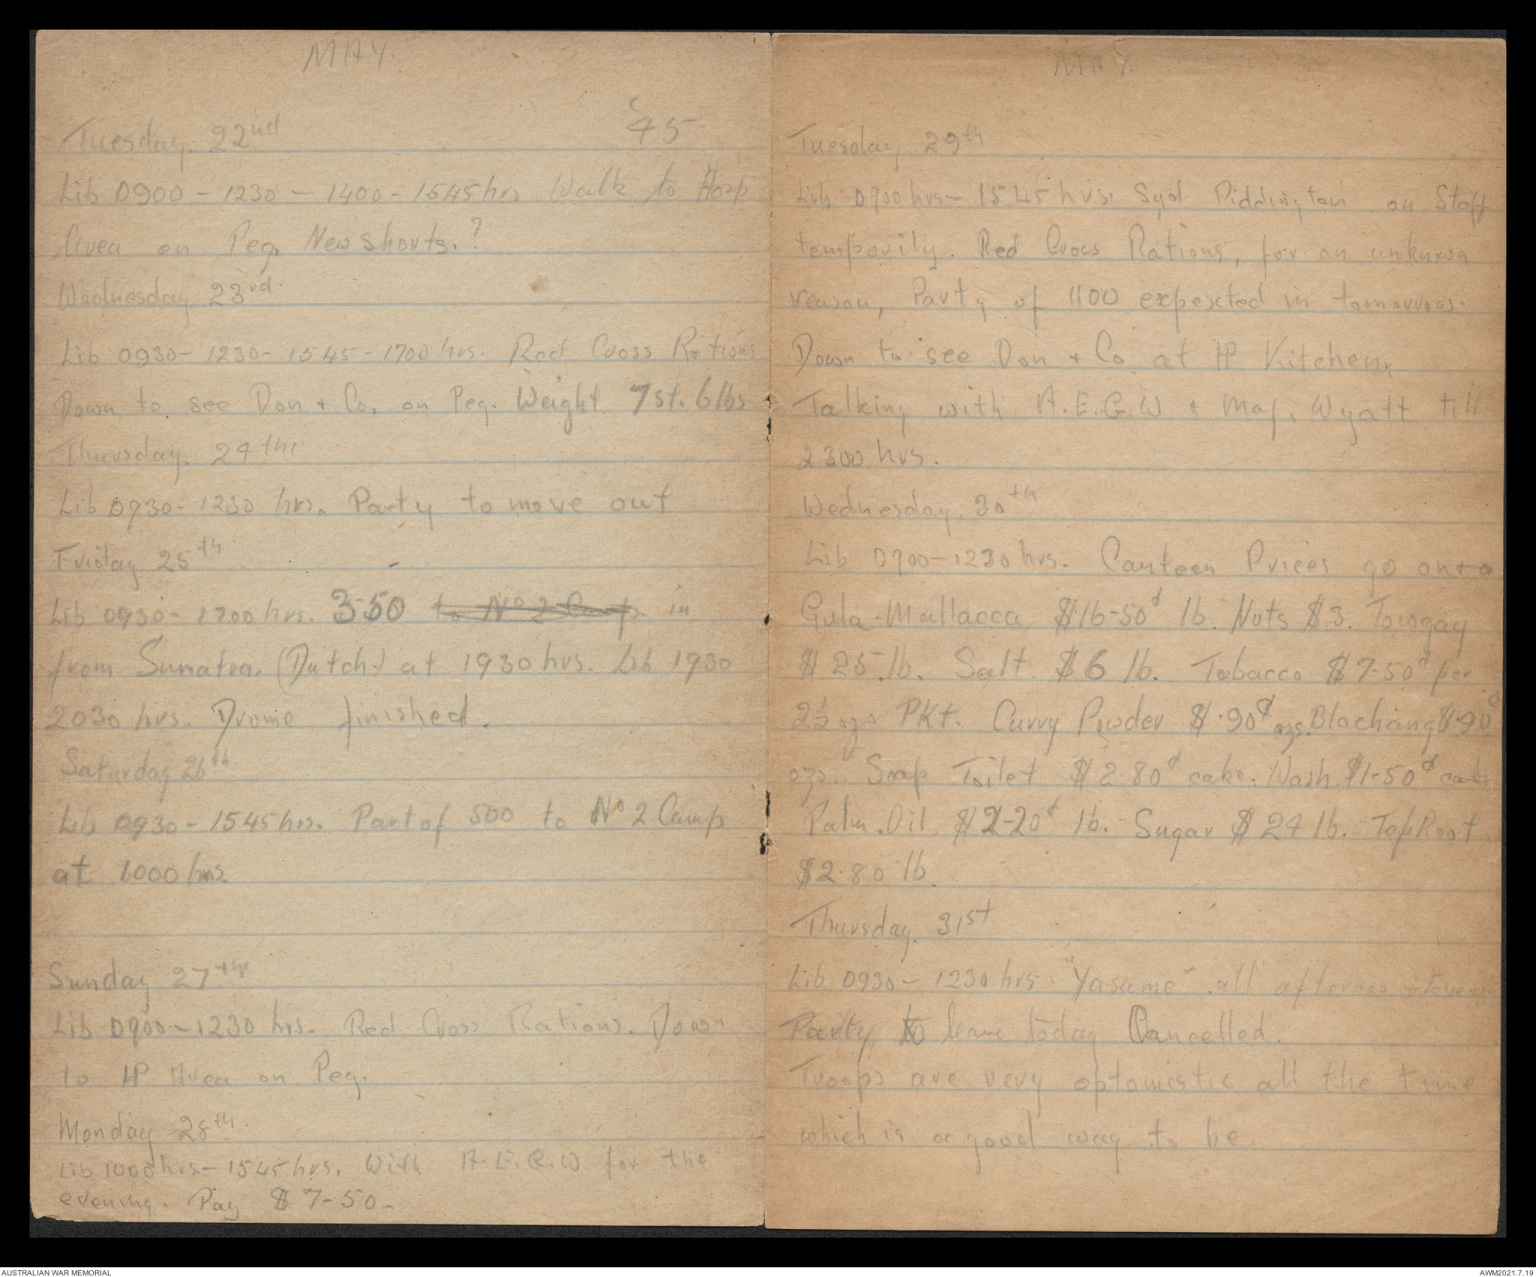 MAY.
Tuesday. 22nd '45
Lib 0900 - 1230 - 1400 - 1545 hrs Walk to Hosp
Area on Peg, New shorts.?
Wednesday 23rd.
Lib 0930 - 1230 - 1545 - 1700 hrs. Red Cross Rations
Down to see Don + Co, on Peg. Weight 7st. 6lbs
Thursday. 24th
Lib 0930 - 1230 hrs. Party to move out
Friday 25th
Lib 0930 - 1700 hrs. 350 to No 2 Camp in
from Sumatra, (Dutch) at 1930 hrs. Lib 1930
2030 hrs. Drome finished.
Saturday 26th
Lib 0930 - 1545 hrs. Part of 500 to No 2 Camp
at 1000 hrs
Sunday 27th
Lib 0900 - 1230 hrs. Red Cross Rations. Down
to HP Area on Peg.
Monday 28th
Lib 1000 hrs - 1545 hrs. With A.E.G.W for the
evening. Pay $7-50-
MAY.
Tuesday 29th
Lib 0900 hrs - 1545 hrs. Syd Piddington on Staff
temporily. Red Cross Rations, for an unknown
reason, Party of 1100 expected in tomorrow.
Down to see Don + Co at HP Kitchen,
Talking with A.E.G.W + Maj. Wyatt till
2300 hrs.
Wednesday. 30th
Lib 0900 - 1230 hrs. Canteen Prices go onto
Gula-Mallacca $16-50d lb. Nuts $.3. Towgay
$25.lb. Salt $6 lb. Tobacco $7-50d per
2½ ozs PKt. Curry Powder $.90d ozs. Blachang $.90d
ozs. Soap Toilet $2.80d cake. Wash. $1-50d cake
Palm. Oil. $2-20d lb. Sugar $24 lb. Tap Root
$2.80 lb.
Thursday. 31st
Lib 0930 - 1230 hrs "Yasume" all afternoo + Evenin
Party, to leave today Cancelled.
Troops are very optomistic all the time
which is a good way to be.
AUSTRALIAN WAR MEMORIAL
AWM2021.7.19